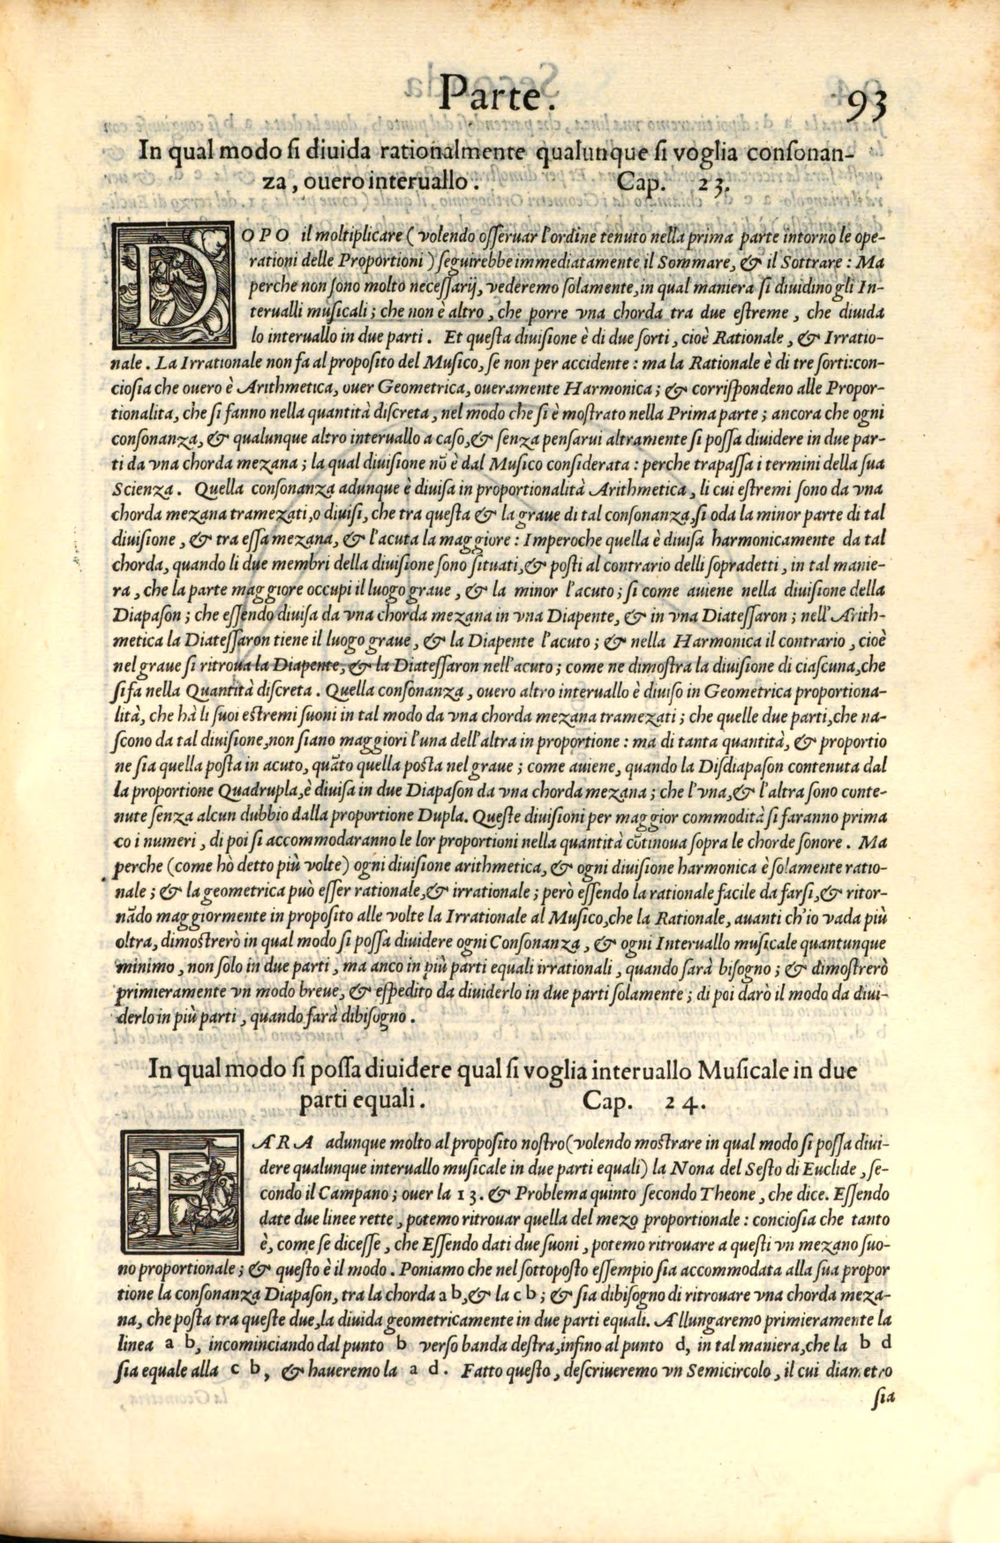 Parte. 93
In qual modo ſi diuida rationalmente qualunque ſi voglia conſonan-
za, ouero interuallo. Cap. 23.
DOPO il moltiplicare (volendo oſſeruar l'ordine tenuto nella prima parte intorno le ope-
rationi delle Proportioni) ſeguirebbe immediatamente il Sommare, & il Sottrare: Ma
perche non ſono molto neceſſarij, vederemo ſolamente, in qual maniera ſi diuidino gli In-
terualli muſicali; che non è altro, che porre vna chorda tra due eſtreme, che diuida
lo interuallo in due parti. Et queſta diuiſione è di due ſorti, cioè Rationale, & Irratio-
nale. La Irrationale non fa al propoſito del Muſico, ſe non per accidente: ma la Rationale è di tre ſorti:con-
cioſia che ouero è Arithmetica, ouer Geometrica, oueramente Harmonica; & corriſpondeno alle Propor-
tionalita, che ſi fanno nella quantità diſcreta, nel modo che ſi è moſtrato nella Prima parte; ancora che ogni
conſonanza, & qualunque altro interuallo a caſo, & ſenza penſarui altramente ſi poſſa diuidere in due par-
ti da vna chorda mezana; la qual diuiſione nō è dal Muſico conſiderata: perche trapaſſa i termini della ſua
Scienza. Quella conſonanza adunque è diuiſa in proportionalità Arithmetica, li cui eſtremi ſono da vna
chorda mezana tramezati, o diuiſi, che tra queſta & la graue di tal conſonanza, ſi oda la minor parte di tal
diuiſione, & tra eſſa mezana, & l'acuta la maggiore: Imperoche quella è diuiſa harmonicamente da tal
chorda, quando li due membri della diuiſione ſono ſituati, & poſti al contrario delli ſopradetti, in tal manie-
ra, che la parte maggiore occupi il luogo graue, & la minor l'acuto; ſi come auiene nella diuiſione della
Diapaſon; che eſſendo diuiſa da vna chorda mezana in vna Diapente, & in vna Diateſſaron; nell'Arith-
metica la Diateſſaron tiene il luogo graue, & la Diapente l'acuto; & nella Harmonica il contrario, cioè
nel graue ſi ritroua la Diapente, & la Diateſſaron nell'acuto; come ne dimoſtra la diuiſione di ciaſcuna, che
ſi fa nella Quantità diſcreta. Quella conſonanza, ouero altro interuallo è diuiſo in Geometrica proportiona-
lità, che hà li ſuoi eſtremi ſuoni in tal modo da vna chorda mezana tramezati; che quelle due parti, che na-
ſcono da tal diuiſione, non ſiano maggiori l'una dell'altra in proportione: ma di tanta quantità, & proportio
ne ſia quella poſta in acuto, quāto quella poſta nel graue; come auiene, quando la Diſdiapaſon contenuta dal
la proportione Quadrupla, è diuiſa in due Diapaſon da vna chorda mezana; che l'vna, & l'altra ſono conte-
nute ſenza alcun dubbio dalla proportione Dupla. Queſte diuiſioni per maggior commodità ſi faranno prima
co i numeri, di poi ſi accommodaranno le lor proportioni nella quantità cōtinoua ſopra le chorde ſonore. Ma
perche (come hò detto più volte) ogni diuiſione arithmetica, & ogni diuiſione harmonica è ſolamente ratio-
nale; & la geometrica può eſſer rationale, & irrationale; però eſſendo la rationale facile da farſi, & ritor-
nādo maggiormente in propoſito alle volte la Irrationale al Muſico, che la Rationale, auanti ch'io vada più
oltra, dimoſtrerò in qual modo ſi poſſa diuidere ogni Conſonanza, & ogni Interuallo muſicale quantunque
minimo, non ſolo in due parti, ma anco in più parti equali irrationali, quando ſarà biſogno; & dimoſtrerò
primieramente vn modo breue, & eſpedito da diuiderlo in due parti ſolamente; di poi darò il modo da diui-
derlo in più parti, quando farà dibiſogno.
In qual modo ſi poſſa diuidere qual ſi voglia interuallo Muſicale in due
parti equali. Cap. 24.
FARA adunque molto al propoſito noſtro (volendo moſtrare in qual modo ſi poſſa diui-
dere qualunque interuallo muſicale in due parti equali) la Nona del Seſto di Euclide, ſe-
condo il Campano; ouer la 13. & Problema quinto ſecondo Theone, che dice. Eſſendo
date due linee rette, potemo ritrouar quella del mezo proportionale: concioſia che tanto
è, come ſe diceſſe, che Eſſendo dati due ſuoni, potemo ritrouare a queſti vn mezano ſuo-
no proportionale; & queſto è il modo. Poniamo che nel ſottopoſto eſſempio ſia accommodata alla ſua propor
tione la conſonanza Diapaſon, tra la chorda a b, & la c b; & ſia dibiſogno di ritrouare vna chorda meza-
na, che poſta tra queſte due, la diuida geometricamente in due parti equali. Allungaremo primieramente la
linea a b, incominciando dal punto b verſo banda deſtra, inſino al punto d, in tal maniera, che la b d
ſia equale alla c b, & haueremo la a d. Fatto queſto, deſcriueremo vn Semicircolo, il cui diametro
ſia